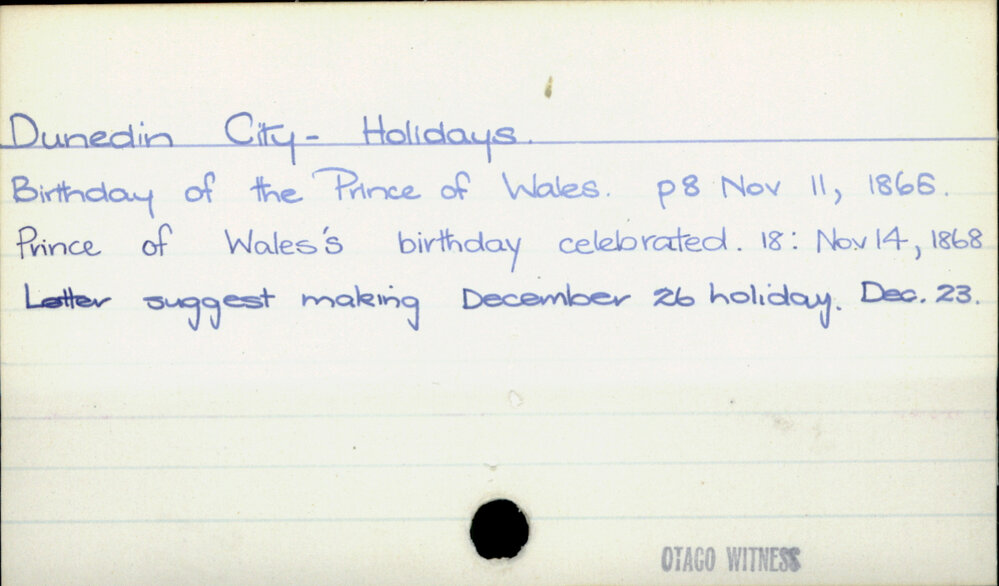 Dunedin City - Holidays.
Birthday of the Prince of Wales. p8 Nov 11, 1865.
Prince of Wales's birthday celebrated. 18: Nov 14, 1868
Letter suggest making December 26 holiday. Dec. 23.
OTAGO WITNESS